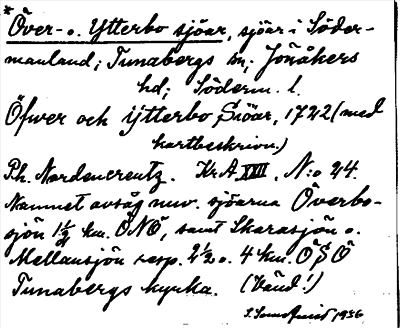 * Över- o. Ytterbo sjöar, sjöar i Söder-
manland; Tunabergs sn; Jönåkers
hd; Söderm. l.
Öfwer och ijtterbo Siöar, 1722 (med
kartbeskrivn.)
Ph. Nordencreutz. KrA XVIII, N:o 24.
Namnet avsåg nuv. sjöarna Överbo-
sjön 1 1/2 km. ÖNÖ, samt Skarasjön o.
Mellansjön resp. 2 1/2 o. 4 km. ÖSÖ
Tunabergs kyrka. (Vänd!)
1936